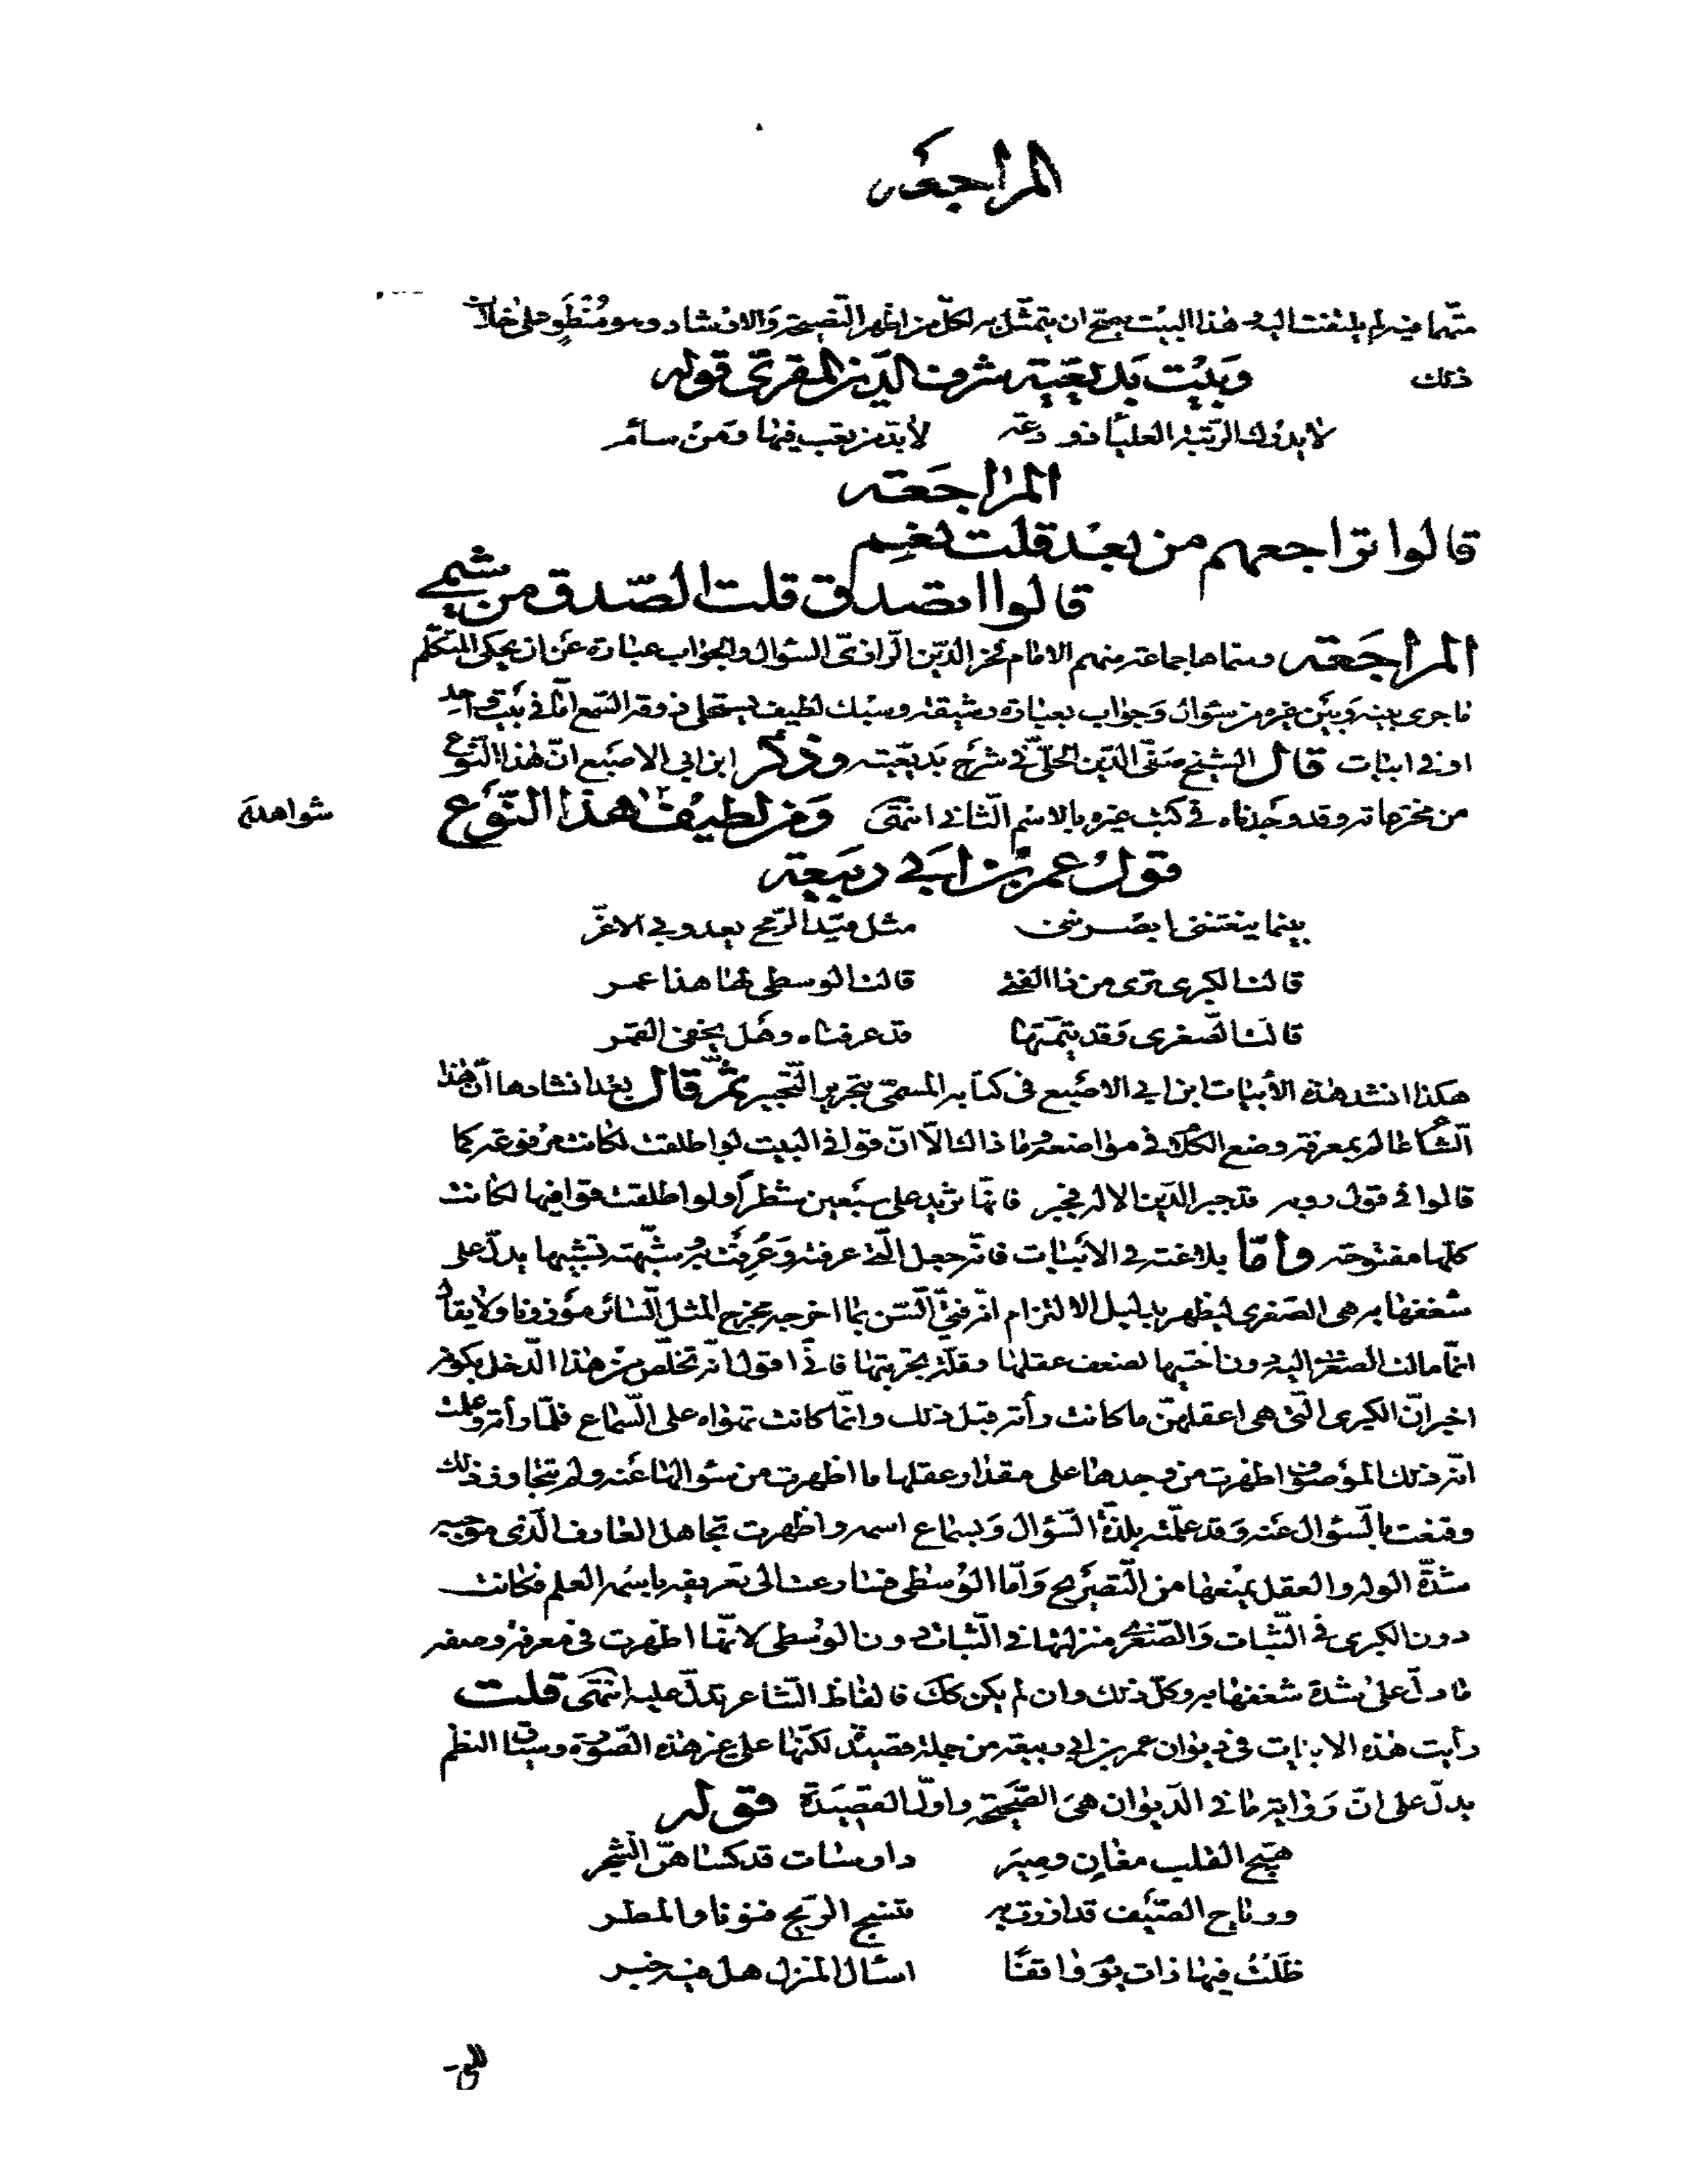 المراجعه
متهما فيه لم يلتفت اليه وهذا البيت يصح ان يتمثل به لكل من اظهر النصيحة والارشاد وهو منطو على خلاف
ذلك وبيت بديعية شرف الدين المقرى قوله
لا يدرك الرتبة العليا فى دعة لا بد من تعب فيها ومن سام
المراجعة
قالوا تراجعهم من بعد قلت نعم
قالوا اتصدق قلت الصدق من شيمى
المراجعة وسماها جماعة منهم الامام فخر الدين الرازى السؤال والجواب عبارة عن ان يحكى المتكلم
ما جرى بينه وبين غيره من سؤال وجواب بعبارة رشيقة وسبك لطيف يستحلى ذوقه السمع اما فى بيت واحد
او فى ابيات قال الشيخ صفى الدين الحلى فى شرح بديعيته وذكر ابن ابى الاصبع ان هذا النوع
من مخترعاته وقد وجدناه فى كتب غيره بالاسم الثانى انتهى ومن لطيف هذا النوع
شواهده
قول عمر بن ابى ربيعة
بينما ينعتننى ابصرننى مثل قيد الرمح يعدو بى الاغر
قالت الكبرى ترى من ذا الفتى قالت الوسطى لها هذا عمر
قالت الصغرى وقد تيمتها قد عرفناه وهل يخفى القمر
هكذا انشد هذه الأبيات ابن ابى الاصبع فى كتابه المسمى بتحرير التحبير ثم قال بعد انشادها ان هذا
الشاعر عالم بمعرفة وضع الكلام فى مواضعه وما ذاك الا ان قوافى البيت لو اطلقت لكانت مرفوعة كما
قالوا فى قول رويه قد جبر الدين الاله فجبر فانها تزيد على سبعين شطرا ولو اطلقت قوافيها لكانت
كلها مفتوحة واما بلاغته فى الابيات فانه جعل التى عرفته وعرفت به وشبهته تشبيها يدل على
شغفها به هى الصغرى ليظهر بدليل الالتزام انه فتى السن بما اخرجه مخرج المثل السائر موزونا ولا يقال
انما مالت الصغرى اليه دون اختيها لضعف عقلها وقلة تجربتها فانى اقول انه تخلص من هذا الدخل بكونه
اخبر ان الكبرى التى هى اعقلهن ما كانت رأته قبل ذلك وانما كانت تهواه على السماع فلما رأته وعلمت
انه ذلك الموصوف اظهرت من وجدها على مقدار عقلها ما اظهرت من سؤالها عنه ولم تتجاوز ذلك
وقنعت بالسؤال عنه وقد علمته بلذة السؤال وبسماع اسمه واظهرت تجاهل العارف الذى موجبه
شدة الوله والعقل يمنعها من التصريح واما الوسطى فسارعت الى تعريفه باسمه العلم فكانت
دون الكبرى فى الثبات والصغرى منزلتها فى الثبات دون الوسطى لانها اظهرت فى معرفة وصفه
ما دل على شدة شغفها به وكل ذلك وان لم يكن كك فالفاظ الشاعر تدل عليه انتهى قلت
رأيت هذه الابيات فى ديوان عمر بن ابى ربيعه من جملة قصيدة لكنها على غير هذه الصورة وسياق النظم
يدل على ان رواية ما فى الديوان هى الصحيحة واول القصيدة قوله
هيج القلب مغان وصير دارسات قد كساهن الشجر
ورياح الصيف قد ازرت به تنسج الريح فنونا والمطر
ظلت فيها ذات يوم واقفا اسأل المنزل هل فيه خبر